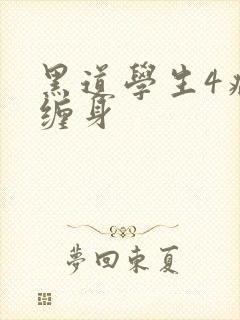 黑道學生4
缠身
夢回東夏